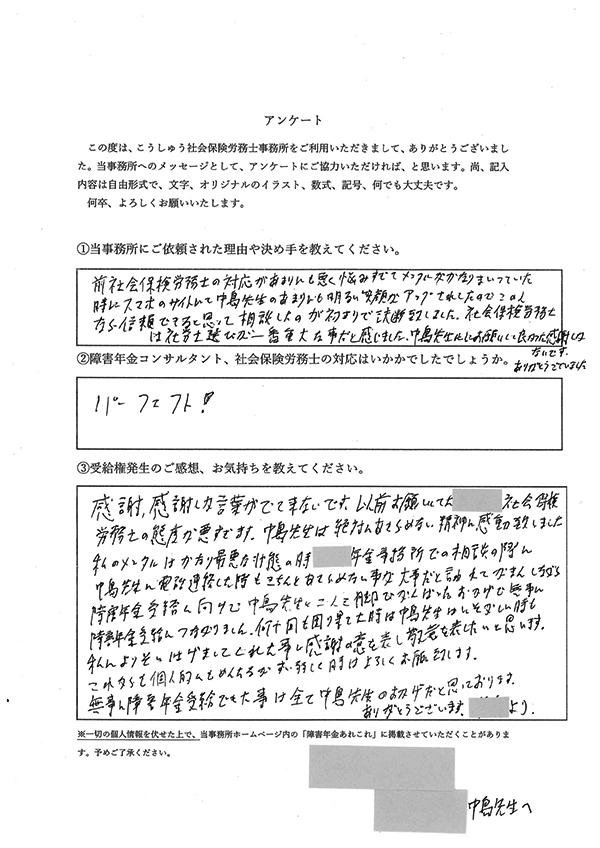 アンケート
この度は、こうしゅう社会保険労務士事務所をご利用いただきまして、ありがとうございまし
た。当事務所へのメッセージとして、アンケートにご協力いただければ、と思います。尚、記入
内容は自由形式で、文字、オリジナルのイラスト、数式、記号、何でも大丈夫です。
何卒、よろしくお願いいたします。
①当事務所にご依頼された理由や決め手を教えてください。
前社会保険労務士の対応があまりにも悪く悩みすぎてメンタルがかなりまいっていた
時にスマホのサイトにて中島先生のあまりにも明るい笑顔がアップされてたのでこの人
なら信頼できると思って相談したのが初まりで決断致しました。社会保険労務士
は社労士選びが一番重大な事だと感じました。中島先生にお願いして良かった感謝しか
ないです。
ありがとうございました
②障害年金コンサルタント、社会保険労務士の対応はいかがでしたでしょうか。
パーフェクト!
③受給権発生のご感想、お気持ちを教えてください。
感謝,感謝しか言葉がでてきないです。以前お願いしてた 社会保険
労務士の態度が悪すぎます。中島先生は絶対にあきらめない精神に感動致しました
私のメンタルはかなり最悪な状態の時 年金事務所での相談の際に
中島先生に電話連絡した時もきちんとあきらめない事が大事だと 下さいがまんしながら
障害年金受給に向けて中島先生と二人三脚でがんばったおかげで無事に
障害年金受給につながりました。何十回も困り果てた時は中島先生はいそがしい時も
私によりそいはげましてくれた事に感謝の意を表し敬意を表したいと思います。
これからも個人的にもめんどうかけますが 時はよろしくお願致します。
無事に障害年金受給でき大事は全て中島先生のおかげだと思っております。
ありがとうございます。 より.
※一切の個人情報を伏せた上で、当事務所ホームページ内の「障害年金あれこれ」に掲載させていただくことがありま
す。予めご了承ください。
中島先生へ